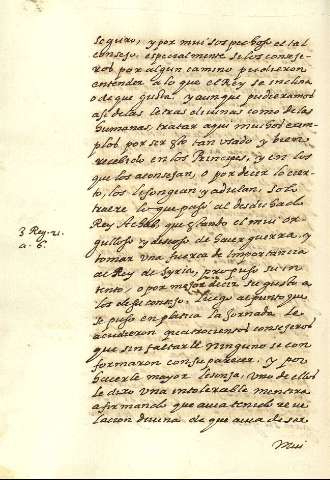 seguro, y por mui sospechoso el tal
consejo, especialmente si los conseje-
ros por algun camino pudieron
entender a lo que el Rey se inclina
o de que gusta. y aunque pudieramos
asi de las letras divinas como de las
humanas, tratar aqui muchos exem-
plos por ser esto tan usado y bien
recebido en los Principes, y en los
que los aconsejan, o por decir lo cier-
to, los lisongean y adulan. Solo
traere lo que paso al desdichado
Rey Achab, que estando el mui or-
gulloso y deseoso de hacer guerra, y
tomar una fuerça de importancia
al Rey de Syria, propuso su in-
tento, o por mejor decir su gusto a
los de su consejo. Luego al punto que
se puso en platica la jornada le
acudieron quatrocientos consejeros
que sin faltarle ninguno se con-
formaron con su parecer, y por
hacerle mayor lisonja, uno de ellos
le dixo una intolerable mentira
afirmando que avia tenido reve-
lacion divina de que avia de ser
mui
3 Reg. 22.
a. 6.